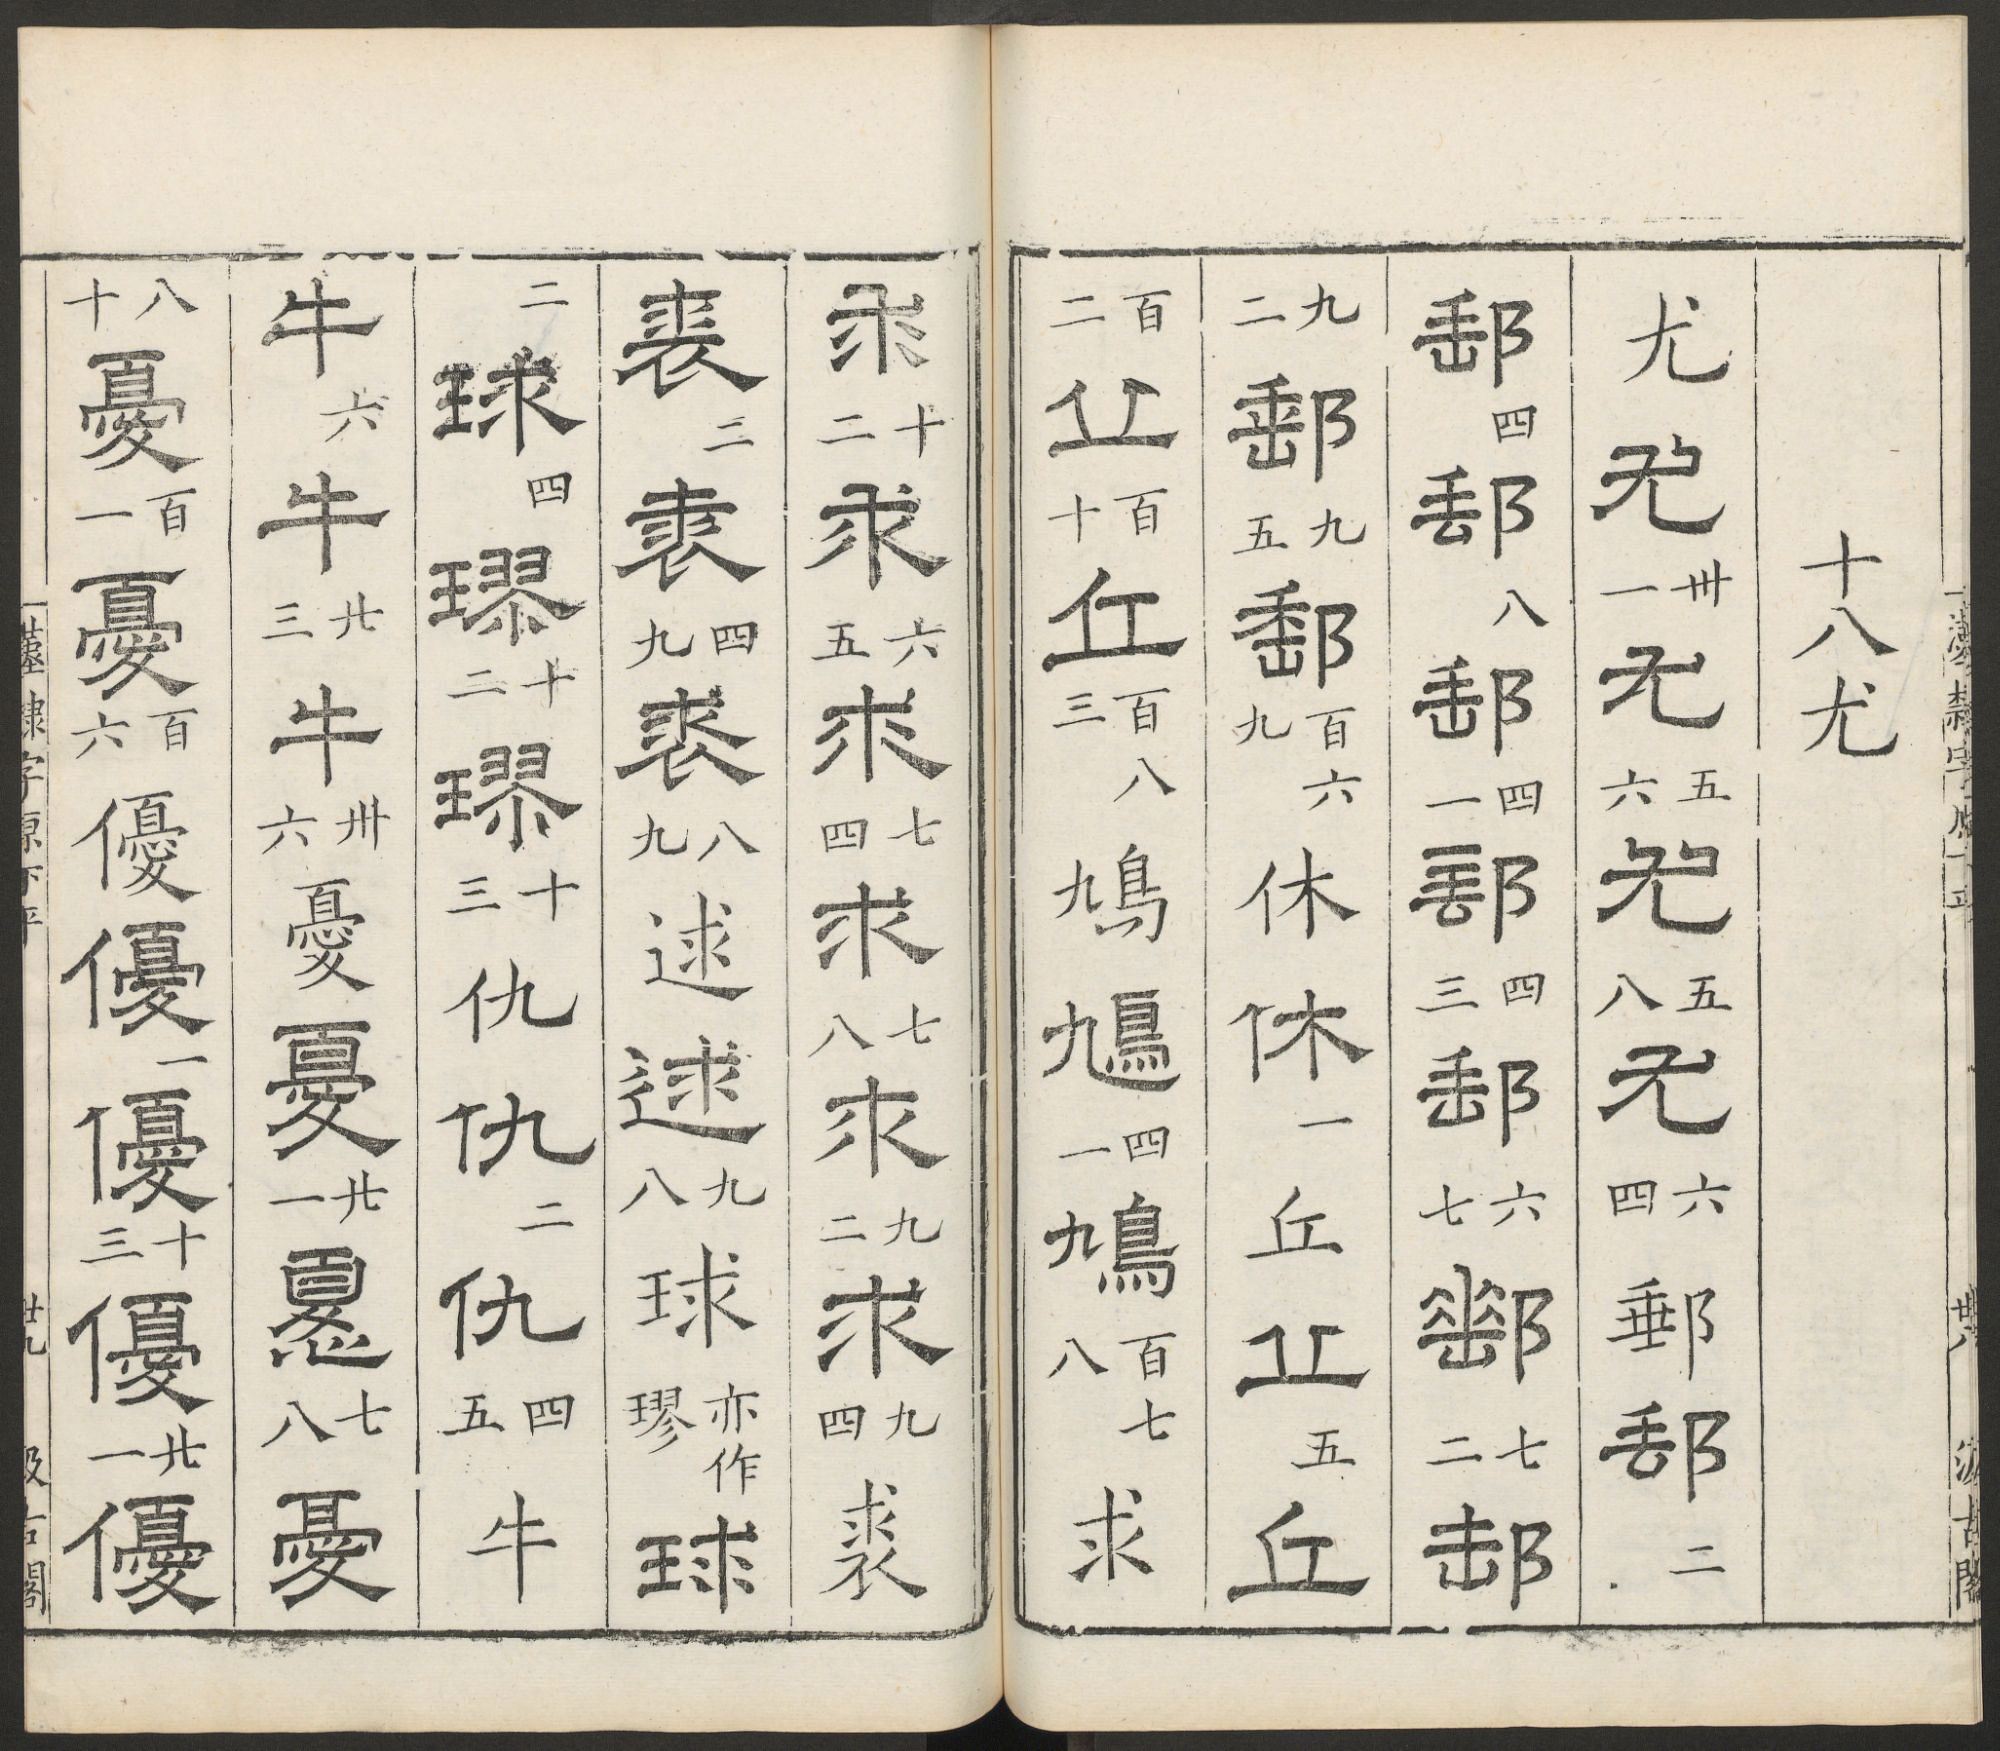 十八尤
尤 尤 卅一 尤 五六 尤 五八 尤 六四 郵 郵 二
郵 四 郵 八 郵 四一 郵 四三 郵 六七 郵 七二 郵
九二 郵 九五 郵 百六九 休 休 一 丘 丘 五 丘
百二 丘 百十 丘 百八三 鳩 鳩 四一 鳩 百七八 求
求 十二 求 六五 求 七四 求 七八 求 九二 求 九四 裘
裘 三 裘 四九 裘 八九 逑 逑 九八 球 亦作璆 球
二 球 四 璆 十二 璆 十三 仇 仇 二 仇 四五 牛
牛 六 牛 廿三 牛 卅六 憂 憂 廿一 憂 七八 憂
八十 憂 百一 憂 百六 優 優 一 優 十三 優 廿一 優
漢隸字原下平 汲古閣
漢隸字原下平 廿九 汲古閣